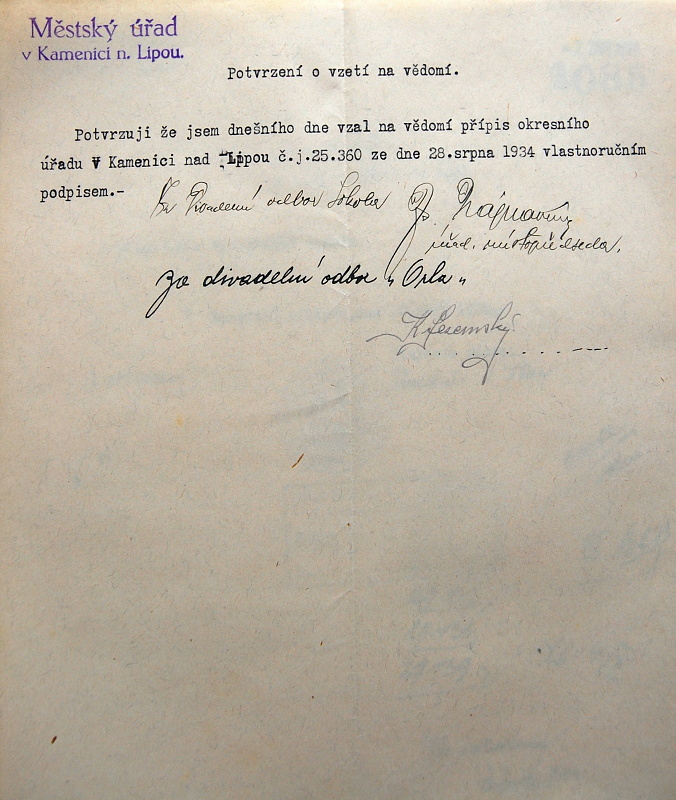 Městský úřad
v Kamenici n. Lipou.
Potvrzení o vzetí na vědomí.
Potvrzuji že jsem dnešního dne vzal na vědomí přípis okresního
úřadu v Kamenici nad Lipou č.j.25.360 ze dne 28.srpna 1934 vlastnoručním
podpisem.-
Za odbor Sokola
místopředseda.
Za divadelní odbor „Orla„